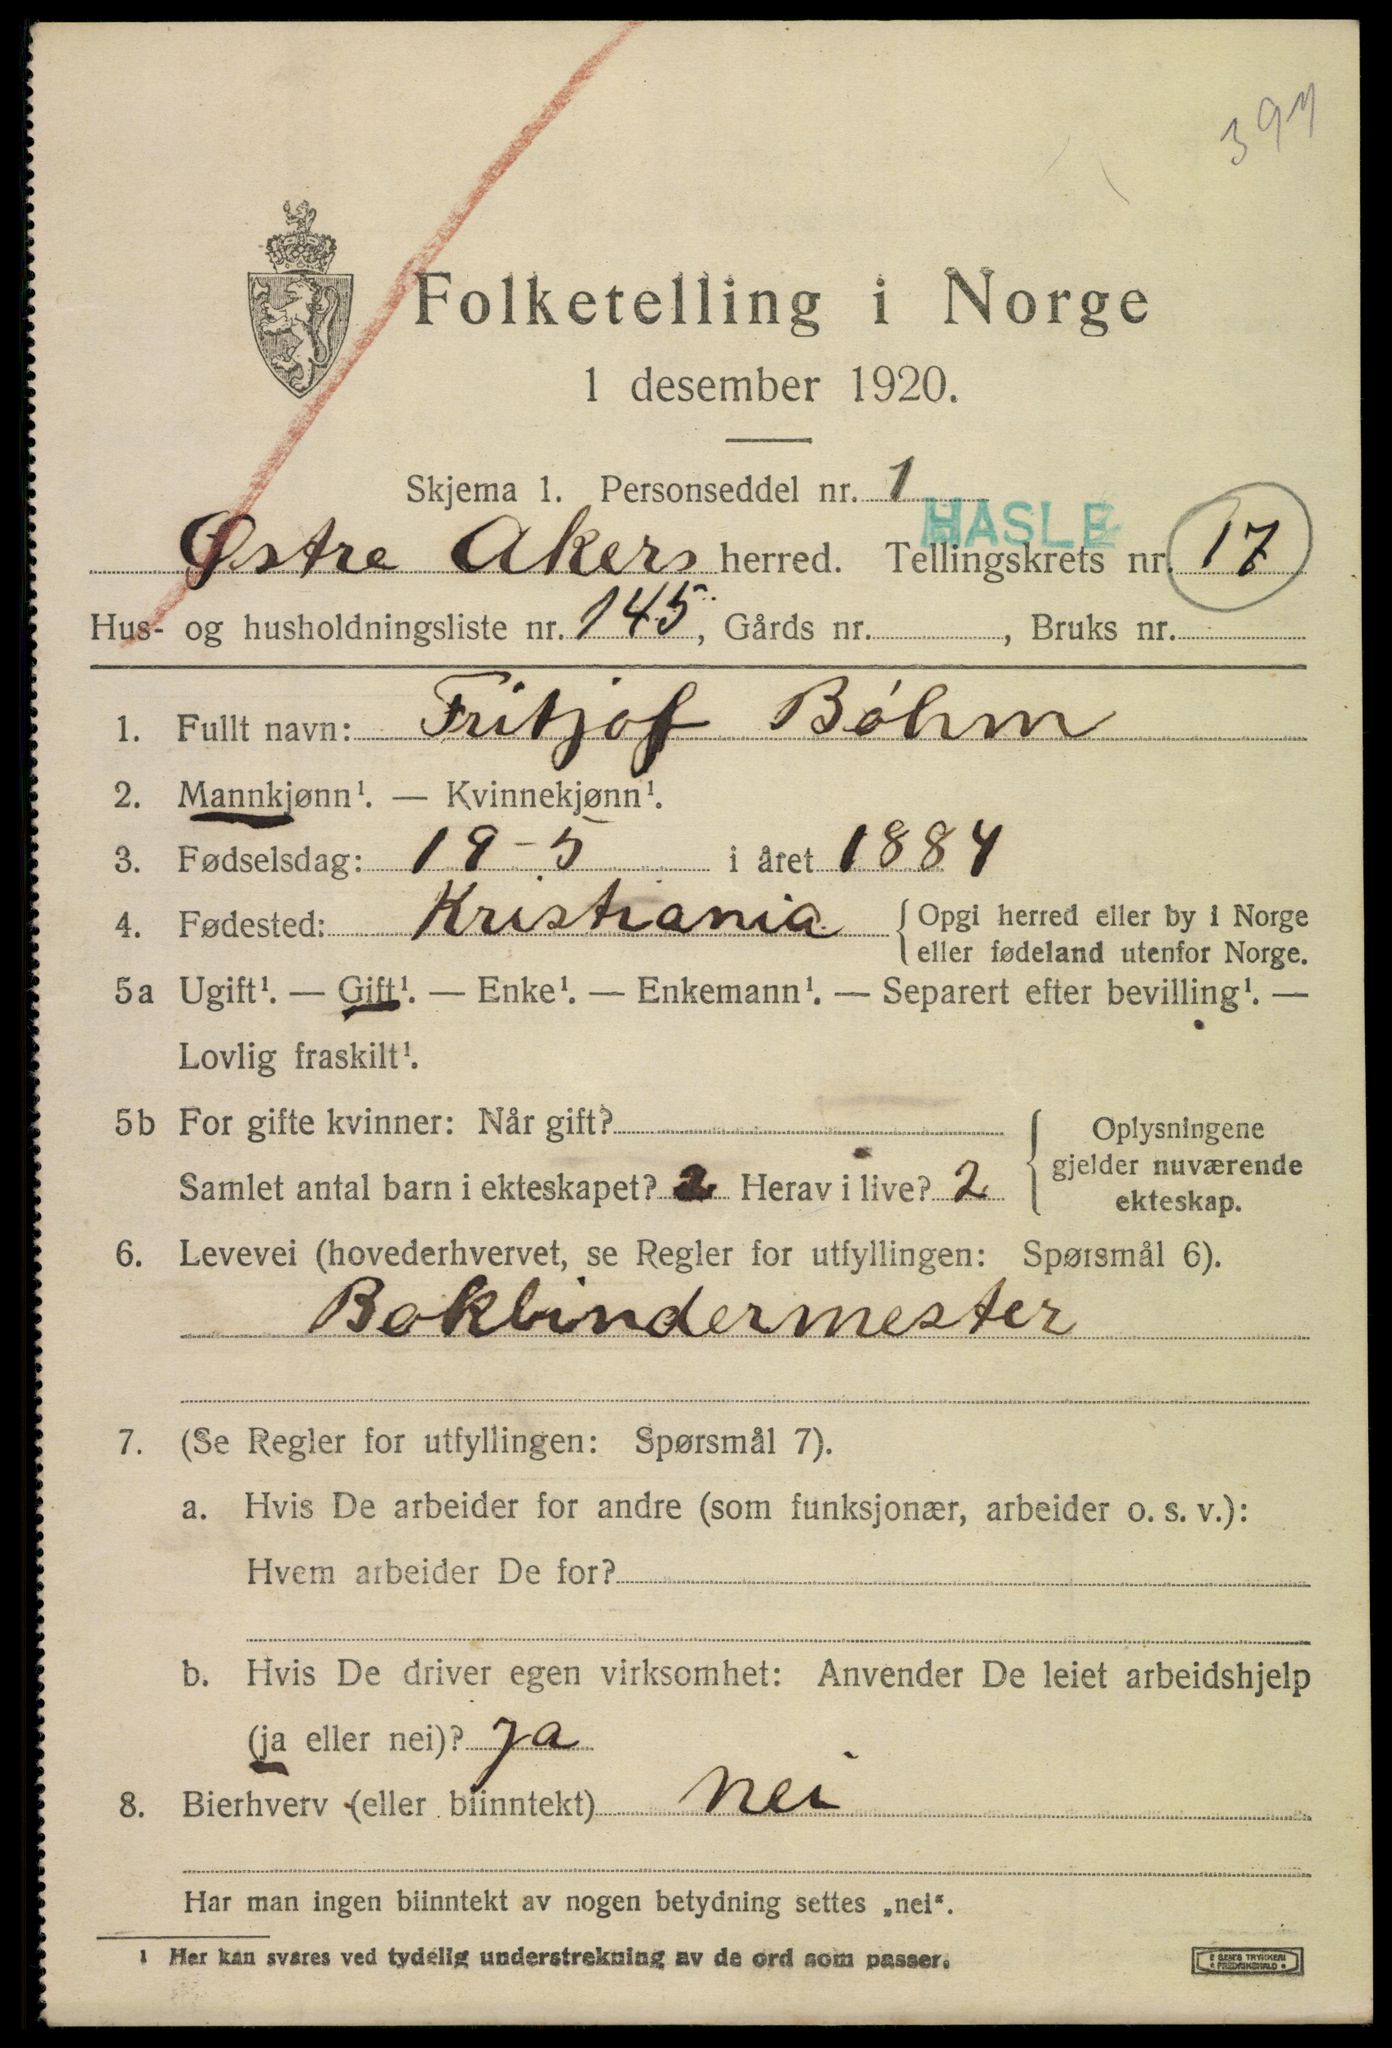 397
Folketelling i Norge
1 desember 1920.
Skjema 1. Personseddel nr. 1
HASLE
Østre Akers herred. Tellingskrets nr. 17
Hus- og husholdningsliste nr. 145, Gårds nr. , Bruks nr.
1. Fullt navn: Fritjof Bóhm
2. Mannkjønn¹. — Kvinnekjønn¹.
3. Fødselsdag: 19-5 i året 1884
4. Fødested: Kristiania { Opgi herred eller by i Norge
eller fødeland utenfor Norge.
5a Ugift¹. — Gift¹. — Enke¹. — Enkemann¹. — Separert efter bevilling¹. —
Lovlig fraskilt¹.
5b For gifte kvinner: Når gift?
Samlet antal barn i ekteskapet? 2 Herav i live? 2
Oplysningene
gjelder nuværende
ekteskap.
6. Levevei (hovederhvervet, se Regler for utfyllingen: Spørsmål 6).
Bokbindermester
7. (Se Regler for utfyllingen: Spørsmål 7).
a. Hvis De arbeider for andre (som funksjonær, arbeider o. s. v.):
Hvem arbeider De for?
b. Hvis De driver egen virksomhet: Anvender De leiet arbeidshjelp
(ja eller nei)? ja
8. Bierhverv (eller biinntekt) nei
Har man ingen biinntekt av nogen betydning settes „nei“.
1 Her kan svares ved tydelig understrekning av de ord som passer.